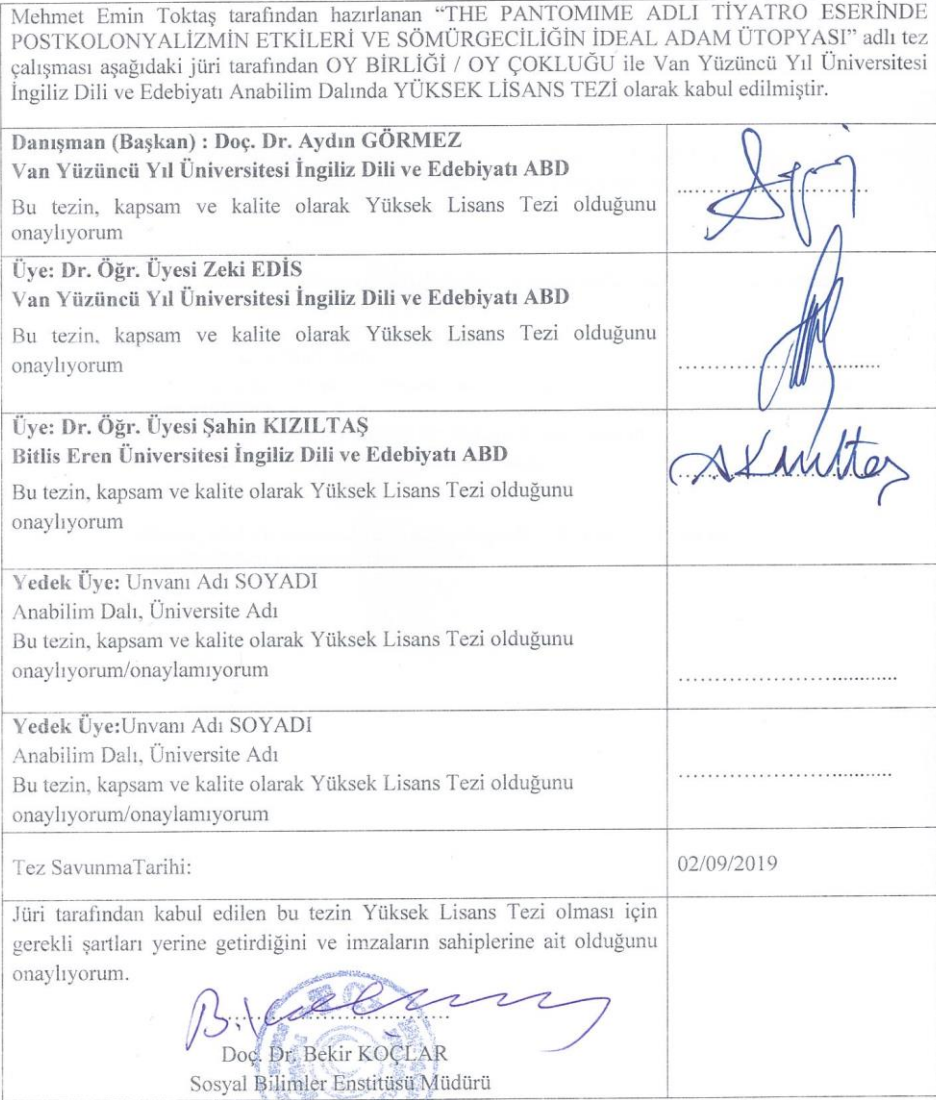 Mehmet Emin Toktaş tarafından hazırlanan “THE PANTOMIME ADLI TİYATRO ESERİNDE
POSTKOLONYALİZMİN ETKİLERİ VE SÖMÜRGECİLİĞİN İDEAL ADAM ÜTOPYASI” adlı tez
çalışması aşağıdaki jüri tarafından OY BİRLİĞİ / OY ÇOKLUĞU ile Van Yüzüncü Yıl Üniversitesi
İngiliz Dili ve Edebiyatı Anabilim Dalında YÜKSEK LİSANS TEZİ olarak kabul edilmiştir.
Danışman (Başkan) : Doç. Dr. Aydın GÖRMEZ
Van Yüzüncü Yıl Üniversitesi İngiliz Dili ve Edebiyatı ABD
Bu tezin, kapsam ve kalite olarak Yüksek Lisans Tezi olduğunu
onaylıyorum
Üye: Dr. Öğr. Üyesi Zeki EDİS
Van Yüzüncü Yıl Üniversitesi İngiliz Dili ve Edebiyatı ABD
Bu tezin, kapsam ve kalite olarak Yüksek Lisans Tezi olduğunu
onaylıyorum
Üye: Dr. Öğr. Üyesi Şahin KIZILTAŞ
Bitlis Eren Üniversitesi İngiliz Dili ve Edebiyatı ABD
Bu tezin, kapsam ve kalite olarak Yüksek Lisans Tezi olduğunu
onaylıyorum
Yedek Üye: Unvanı Adı SOYADI
Anabilim Dalı, Üniversite Adı
Bu tezin, kapsam ve kalite olarak Yüksek Lisans Tezi olduğunu
onaylıyorum/onaylamıyorum
Yedek Üye:Unvanı Adı SOYADI
Anabilim Dalı, Üniversite Adı
Bu tezin, kapsam ve kalite olarak Yüksek Lisans Tezi olduğunu
onaylıyorum/onaylamıyorum
Tez SavunmaTarihi: 02/09/2019
Jüri tarafından kabul edilen bu tezin Yüksek Lisans Tezi olması için
gerekli şartları yerine getirdiğini ve imzaların sahiplerine ait olduğunu
onaylıyorum.
Doç. Dr. Bekir KOÇLAR
Sosyal Bilimler Enstitüsü Müdürü